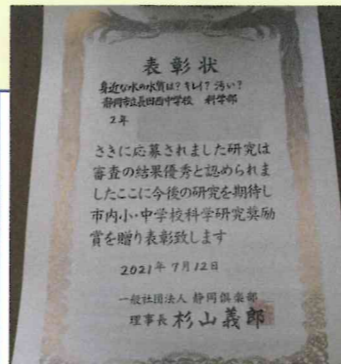 表彰状
身近な水の水質は？キレイ？汚い？
静岡市立長田西中学校 科学部
2年
さきに応募されました研究は
審査の結果優秀と認められま
したここに今後の研究を期待し
市内小・中学校科学研究奨励
賞を贈り表彰致します
2021年7月12日
一般社団法人 静岡倶楽部
理事長 杉山義郎